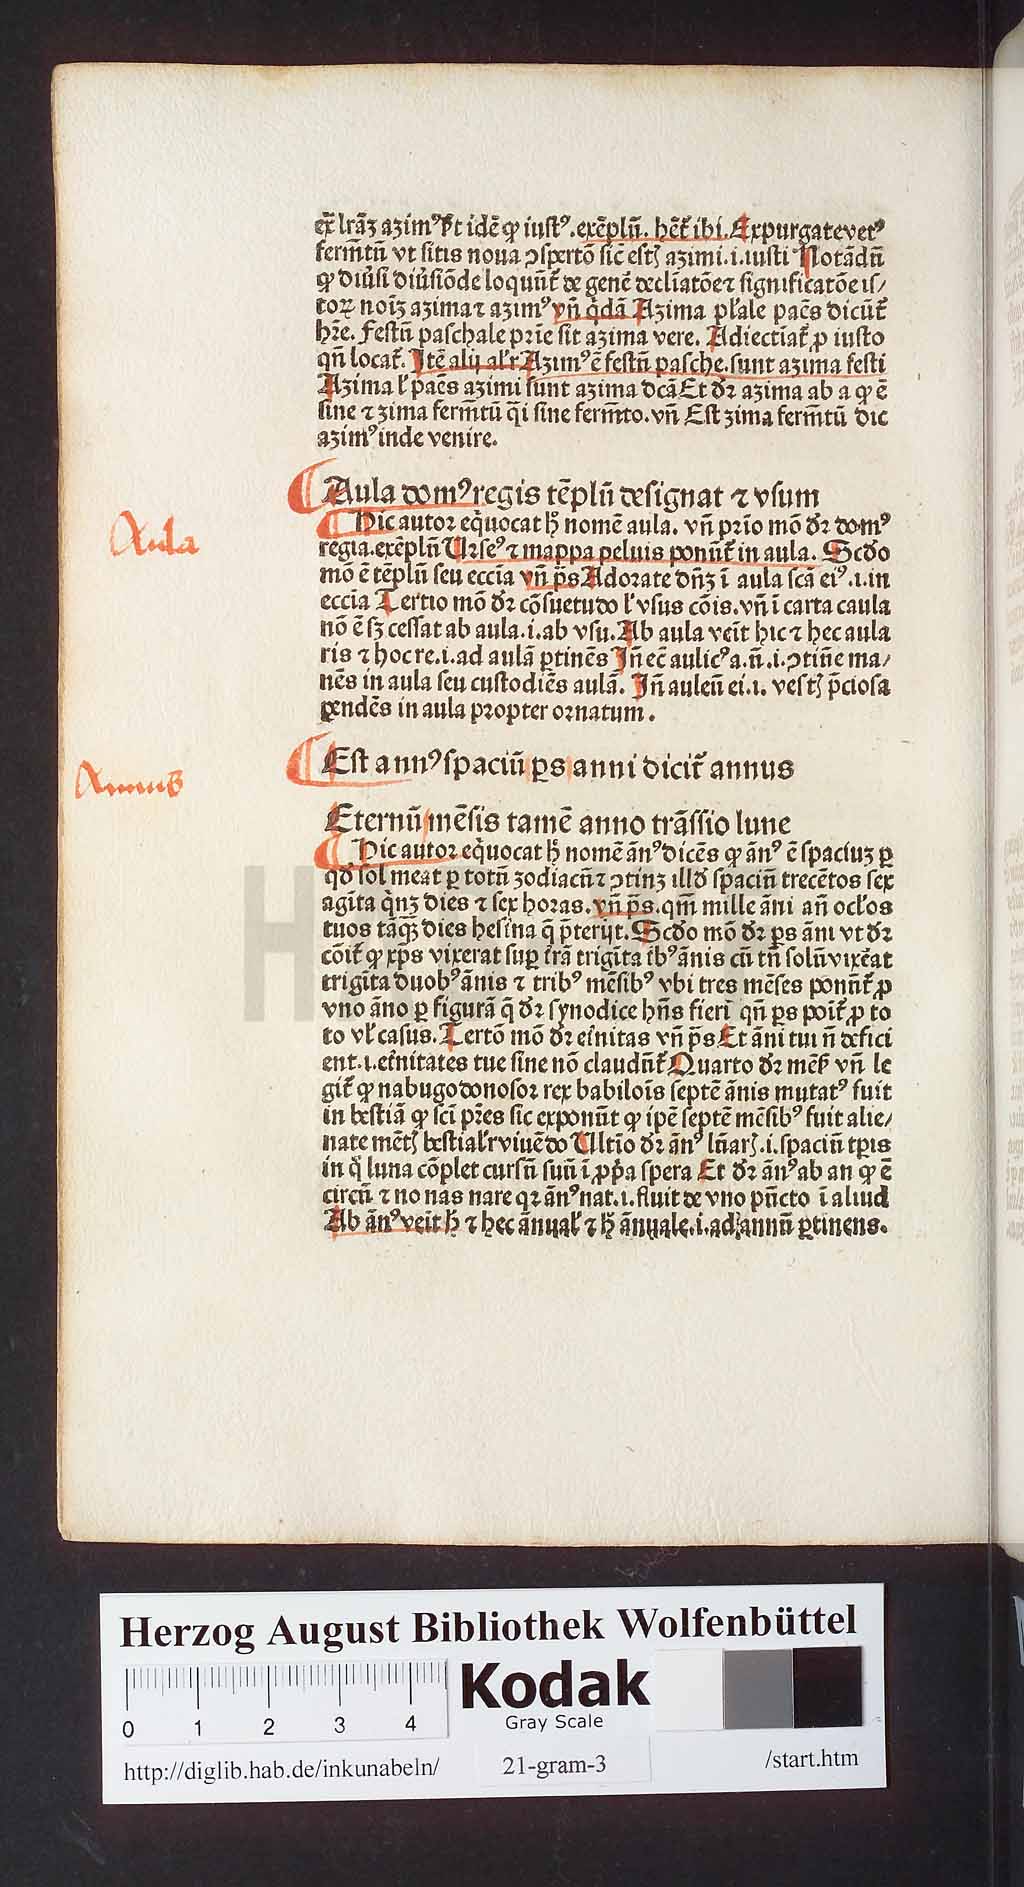 ex̄ lr̄aꝫ azimꝰ ꝓt idē ꝙ iustꝰ. exēplū. hēt̄ ibi. Expurgate vetꝰ
ferm̄tū vt sitis noua ↄsperto sic̄ estꝭ azimi .i. iusti Notādū
ꝙ diūsi diūsiōde loqun̄t̄ de gene de declinatōe ⁊ significatōe is/
toꝝ noīꝫ azima ⁊ azimꝰ vn̄ q̄dā Azima pl̄ale pac̄s dicūt̄
hr̄e. Festū paschale pr̄ie sit azima vere. Adiectiat̄ ꝓ iusto
qn̄ locat̄. Itē alij al'r Azimꝰ ē festū pasche. sunt azima festi
Azima l' pac̄s azimi sunt azima dc̄ā Et dr̄ azima ab a ꝙ ē
sine ⁊ zima ferm̄tū q̄i sine ferm̄to. vn̄ Est zima ferm̄tū dic
azimꝰ inde venire.
Aula domꝰ regis tēplū designat ⁊ vsum
Hic autor eq̄uocat h̄ nomē aula. vn̄ prīo mō dr̄ domꝰ
regia. exēplū Urseꝰ ⁊ mappa peluis ponūt̄ in aula. Scd̄o
mō ē tēplū seu ecc̄ia vn̄ p̄s Adorate dn̄ꝫ ī aula scā eiꝰ .i. in
ecc̄ia Tertio mō dr̄ cōsuetudo l' vsus cōis. vn̄ ī carta caula
nō ē sꝫ cessat ab aula .i. ab vsu. Ab aula veīt hic ⁊ hec aula
ris ⁊ hoc re .i. ad aulā ꝑtinēs In̄ ec̄ aulicꝰ a. n̄ .i. ↄtine ma/
nēs in aula seu custodiēs aulā. In̄ auleū ei .i. vestꝭ p̄ciosa
pendēs in aula propter ornatum.
Est annꝰ spaciū ꝑs anni dicit̄ annus
Eternū mēsis tamē anno trāssio lune
Hic autor eq̄uocat h̄ nomē ānꝰ dicēs ꝙ ānꝰ ē spaciuꝫ ꝑ
qd̄ sol meat ꝑ totū zodiacū ⁊ ↄtinꝫ illd̄ spaciū trecētos sex
agīta q̄nꝫ dies ⁊ sex horas. vn̄ p̄s. qm̄ mille āni an̄ ocl'os
tuos tāqꝫ dies hesī̄na q̄ p̄terijt. Scd̄o mō dr̄ ꝑs āni vt dr̄
cōit̄ ꝙ xp̄s vixerat suꝑ t̄rā trigīta tbꝰ ānis cū tn̄ solū vix̄eat
trigīta duobꝰ ānis ⁊ tribꝰ mēsibꝰ vbi tres mēses ponūt̄ ꝓ
vno āno ꝑ figurā q̄ dr̄ synodice hn̄s fieri qn̄ ꝑs poit̄ ꝓ to
to vl' casus. Tertō mō dr̄ et̄nitas vn̄ p̄s Et āni tui n̄ defici
ent .i. et̄nitates tue sine nō claudūt̄ Quarto dr̄ mēs vn̄ le
git̄ ꝙ nabugodonosor rex babilōis septē ānis mutatꝰ fuit
in bestiā ꝙ sc̄i pr̄es sic exponūt ꝙ ip̄e septē mēsibꝰ fuit alie/
nate mētꝭ bestial'r viuēdo Ultīo dr̄ ānꝰ lūarꝭ .i. spaciū tp̄is
in q̄ luna cōplet cursū suū ī ꝓp̄a spera Et dr̄ ānꝰ ab an ꝙ ē
circū ⁊ no nas nare qꝛ ānꝰ nat .i. fluit de vno pūcto ī aliud
Ab ānꝰ veīt h̄ ⁊ hec ānual' ⁊ h̄ ānuale .i. ad annū ꝑtinens.
Aula
Annus
HAB
Herzog August Bibliothek Wolfenbüttel
Kodak
Gray Scale
0 1 2 3 4
http://diglib.hab.de/inkunabeln/
21-gram-3
/start.htm